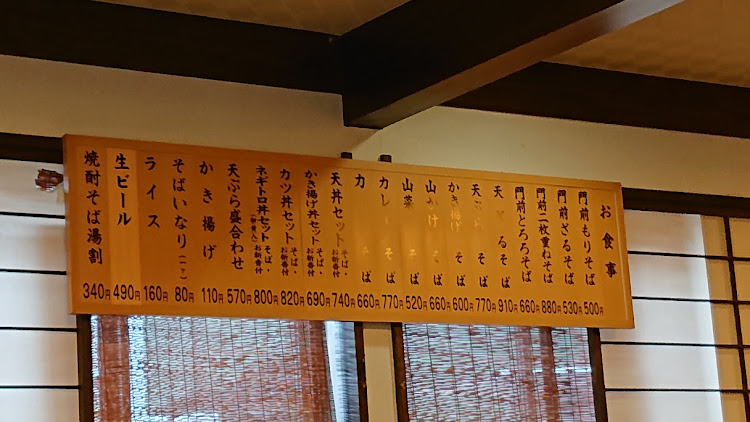 お食事
門前もりそば 500円
門前ざるそば 530円
門前二枚重ねそば 880円
門前とろろそば 660円
天ざるそば 910円
天ぷらそば 770円
かき揚げそば 600円
山かけそば 660円
山菜そば 520円
カレーそば 770円
力そば 660円
天丼セット そば・お新香付 740円
かき揚げ丼セット そば・お新香付 690円
カツ丼セット そば・お新香付 820円
ネギトロ丼セット そば・お新香付 800円
天ぷら盛合わせ 570円
かき揚げ 110円
そばいなり(一ケ) 80円
ライス 160円
生ビール 490円
焼酎そば湯割 340円